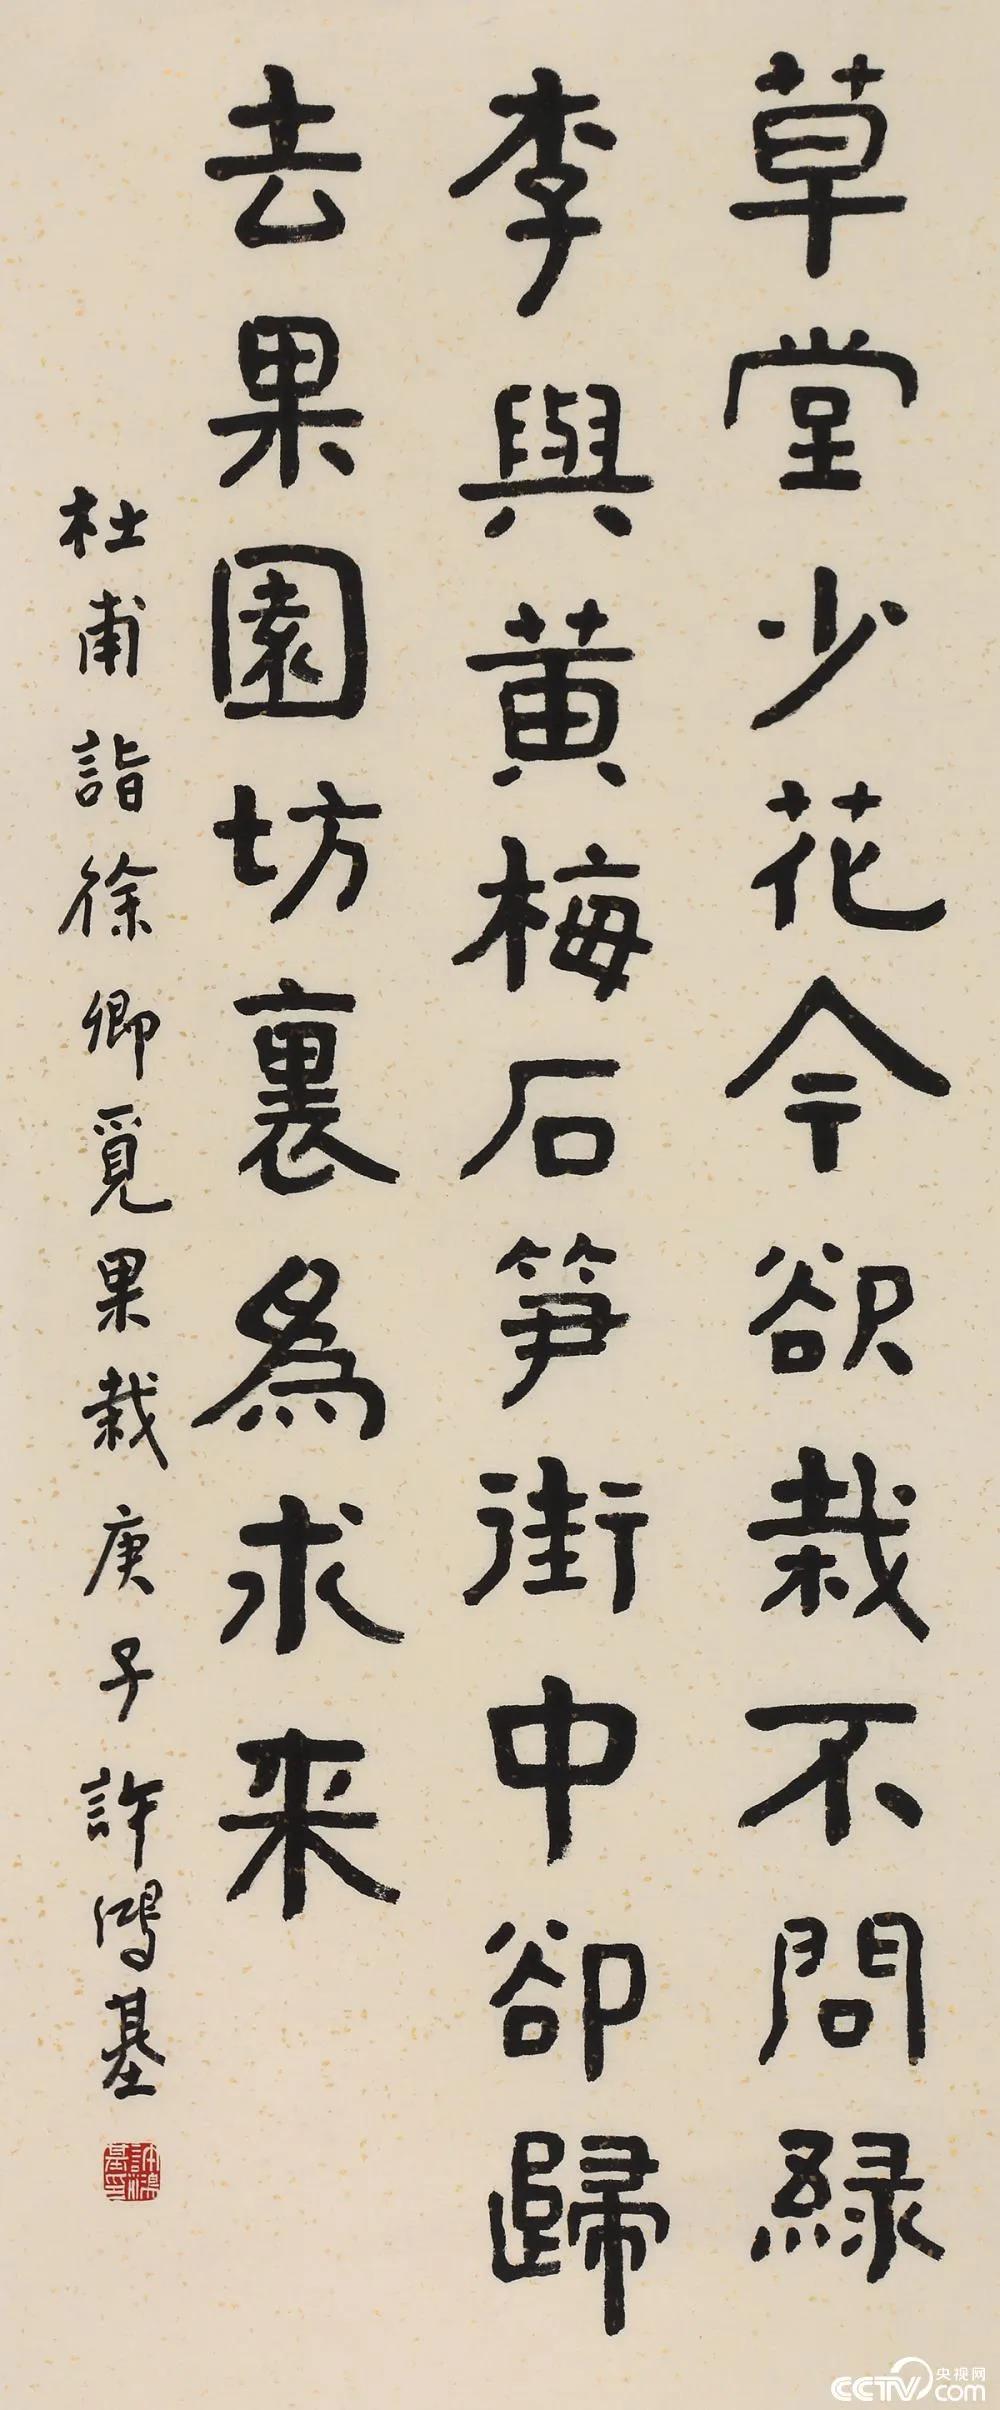 草堂少花今欲栽不問緑
李與黄梅石笋街中卻歸
去果園坊裏為求来
杜甫詣徐卿覓果栽庚子許鴻基
許鴻基印
央视网
CCTV.com